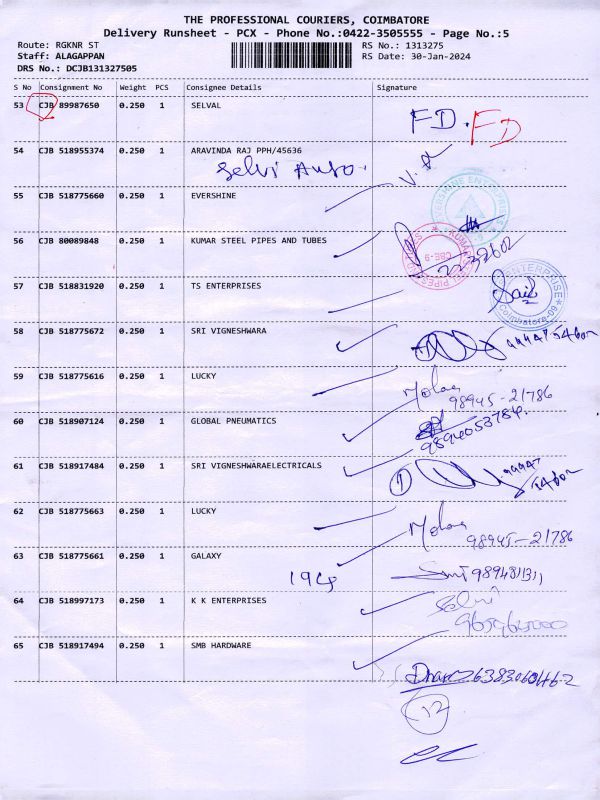 THE PROFESSIONAL COURIERS, COIMBATORE
Delivery Runsheet - PCX - Phone No.:0422-3505555 - Page No.:5
Route: RGKNR ST RS No.: 1313275
Staff: ALAGAPPAN RS Date: 30-Jan-2024
DRS No.: DCJB131327505
S No Consignment No Weight PCS Consignee Details Signature
53 CJB 89987650 0.250 1 SELVAL FD. FD
54 CJB 518955374 0.250 1 ARAVINDA RAJ PPH/45636
Selvi Auto.
55 CJB 518775660 0.250 1 EVERSHINE
56 CJB 80089848 0.250 1 KUMAR STEEL PIPES AND TUBES
2232602
CBE-9
57 CJB 518831920 0.250 1 TS ENTERPRISES
ENTERPRISE
Coimbatore-09
58 CJB 518775672 0.250 1 SRI VIGNESHWARA
59 CJB 518775616 0.250 1 LUCKY
98945-21786
60 CJB 518907124 0.250 1 GLOBAL PNEUMATICS
9894053784.
61 CJB 518917484 0.250 1 SRI VIGNESHWARAELECTRICALS
62 CJB 518775663 0.250 1 LUCKY
98945-21786
63 CJB 518775661 0.250 1 GALAXY
64 CJB 518997173 0.250 1 K K ENTERPRISES
65 CJB 518917494 0.250 1 SMB HARDWARE
12